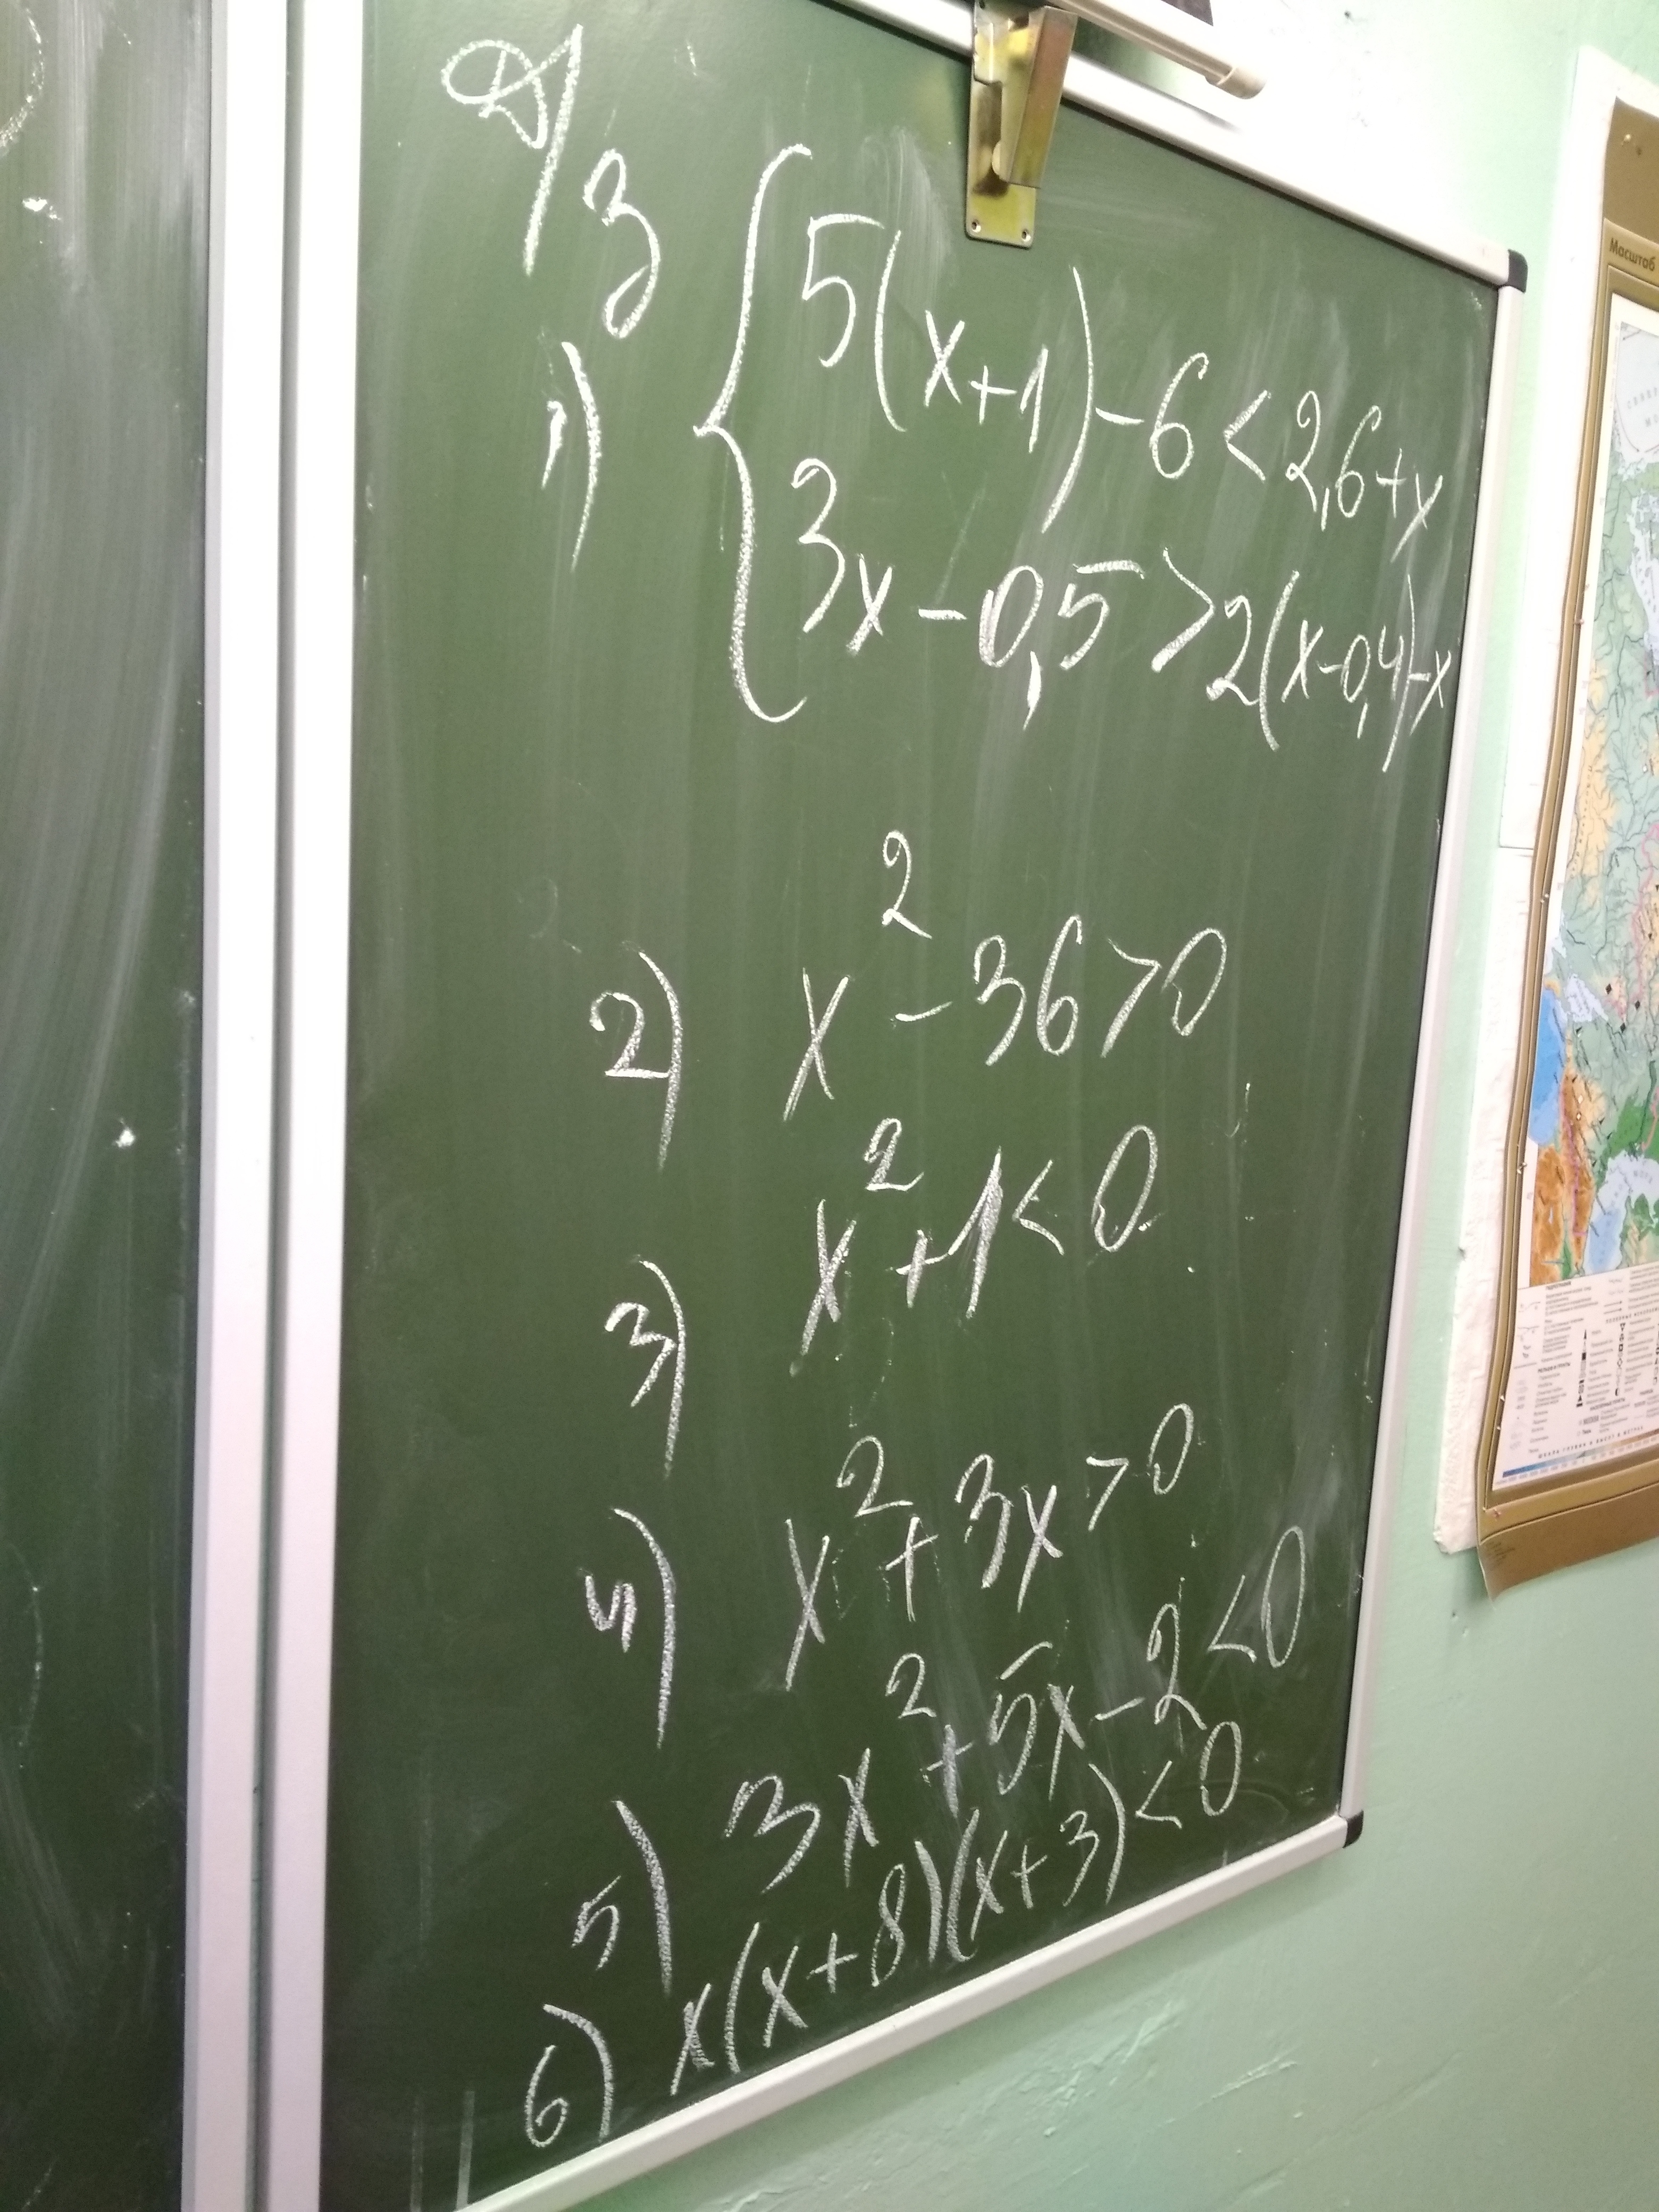 Д/З
1) { 5(x+1)-6<2,6+x
3x-0,5>2(x-0,4)-x
2) x²-36>0
3) x²+1<0
4) x²+3x>0
5) 3x²+5x-2<0
6) x(x+8)(x+3)<0
Масштаб